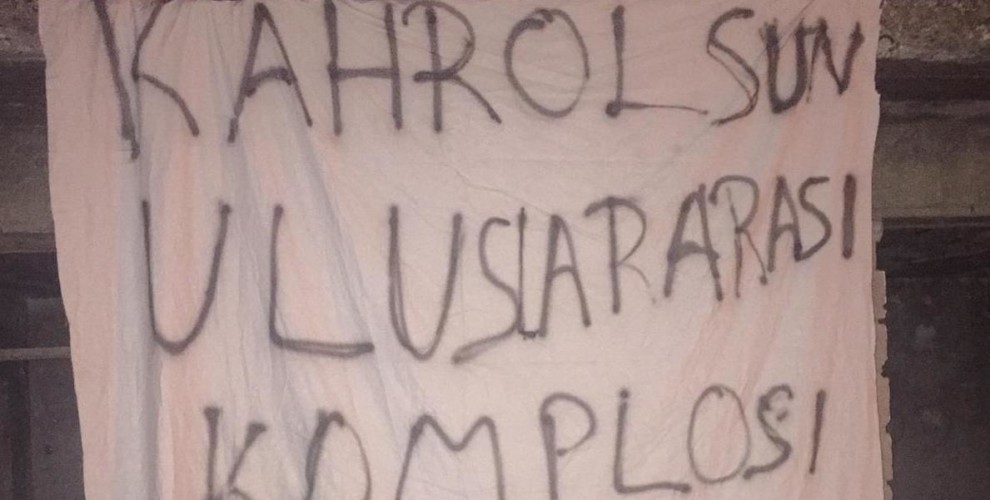 KAHROLSUN
ULUSLARARASI
KOMPLOSI